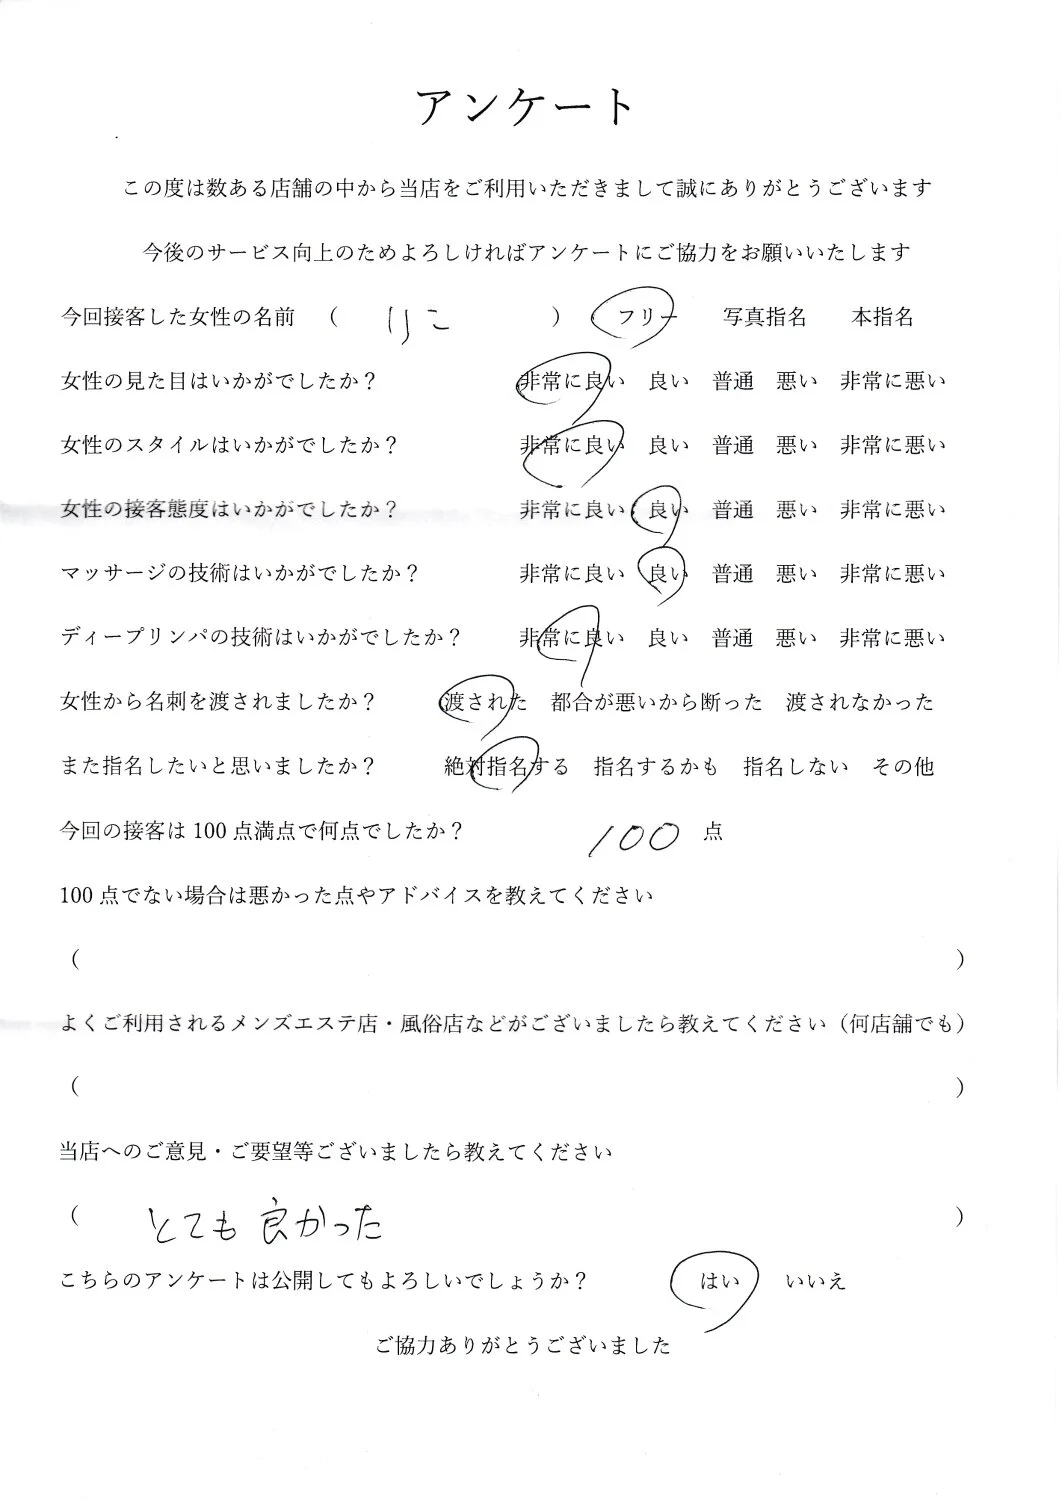 アンケート
この度は数ある店舗の中から当店をご利用いただきまして誠にありがとうございます
今後のサービス向上のためよろしければアンケートにご協力をお願いいたします
今回接客した女性の名前 （ りこ ） フリー 写真指名 本指名
女性の見た目はいかがでしたか？ 非常に良い 良い 普通 悪い 非常に悪い
女性のスタイルはいかがでしたか？ 非常に良い 良い 普通 悪い 非常に悪い
女性の接客態度はいかがでしたか？ 非常に良い 良い 普通 悪い 非常に悪い
マッサージの技術はいかがでしたか？ 非常に良い 良い 普通 悪い 非常に悪い
ディープリンパの技術はいかがでしたか？ 非常に良い 良い 普通 悪い 非常に悪い
女性から名刺を渡されましたか？ 渡された 都合が悪いから断った 渡されなかった
また指名したいと思いましたか？ 絶対指名する 指名するかも 指名しない その他
今回の接客は 100 点満点で何点でしたか？ 100 点
100 点でない場合は悪かった点やアドバイスを教えてください
（ ）
よくご利用されるメンズエステ店・風俗店などがございましたら教えてください（何店舗でも）
（ ）
当店へのご意見・ご要望等ございましたら教えてください
（ とても良かった ）
こちらのアンケートは公開してもよろしいでしょうか？ はい いいえ
ご協力ありがとうございました